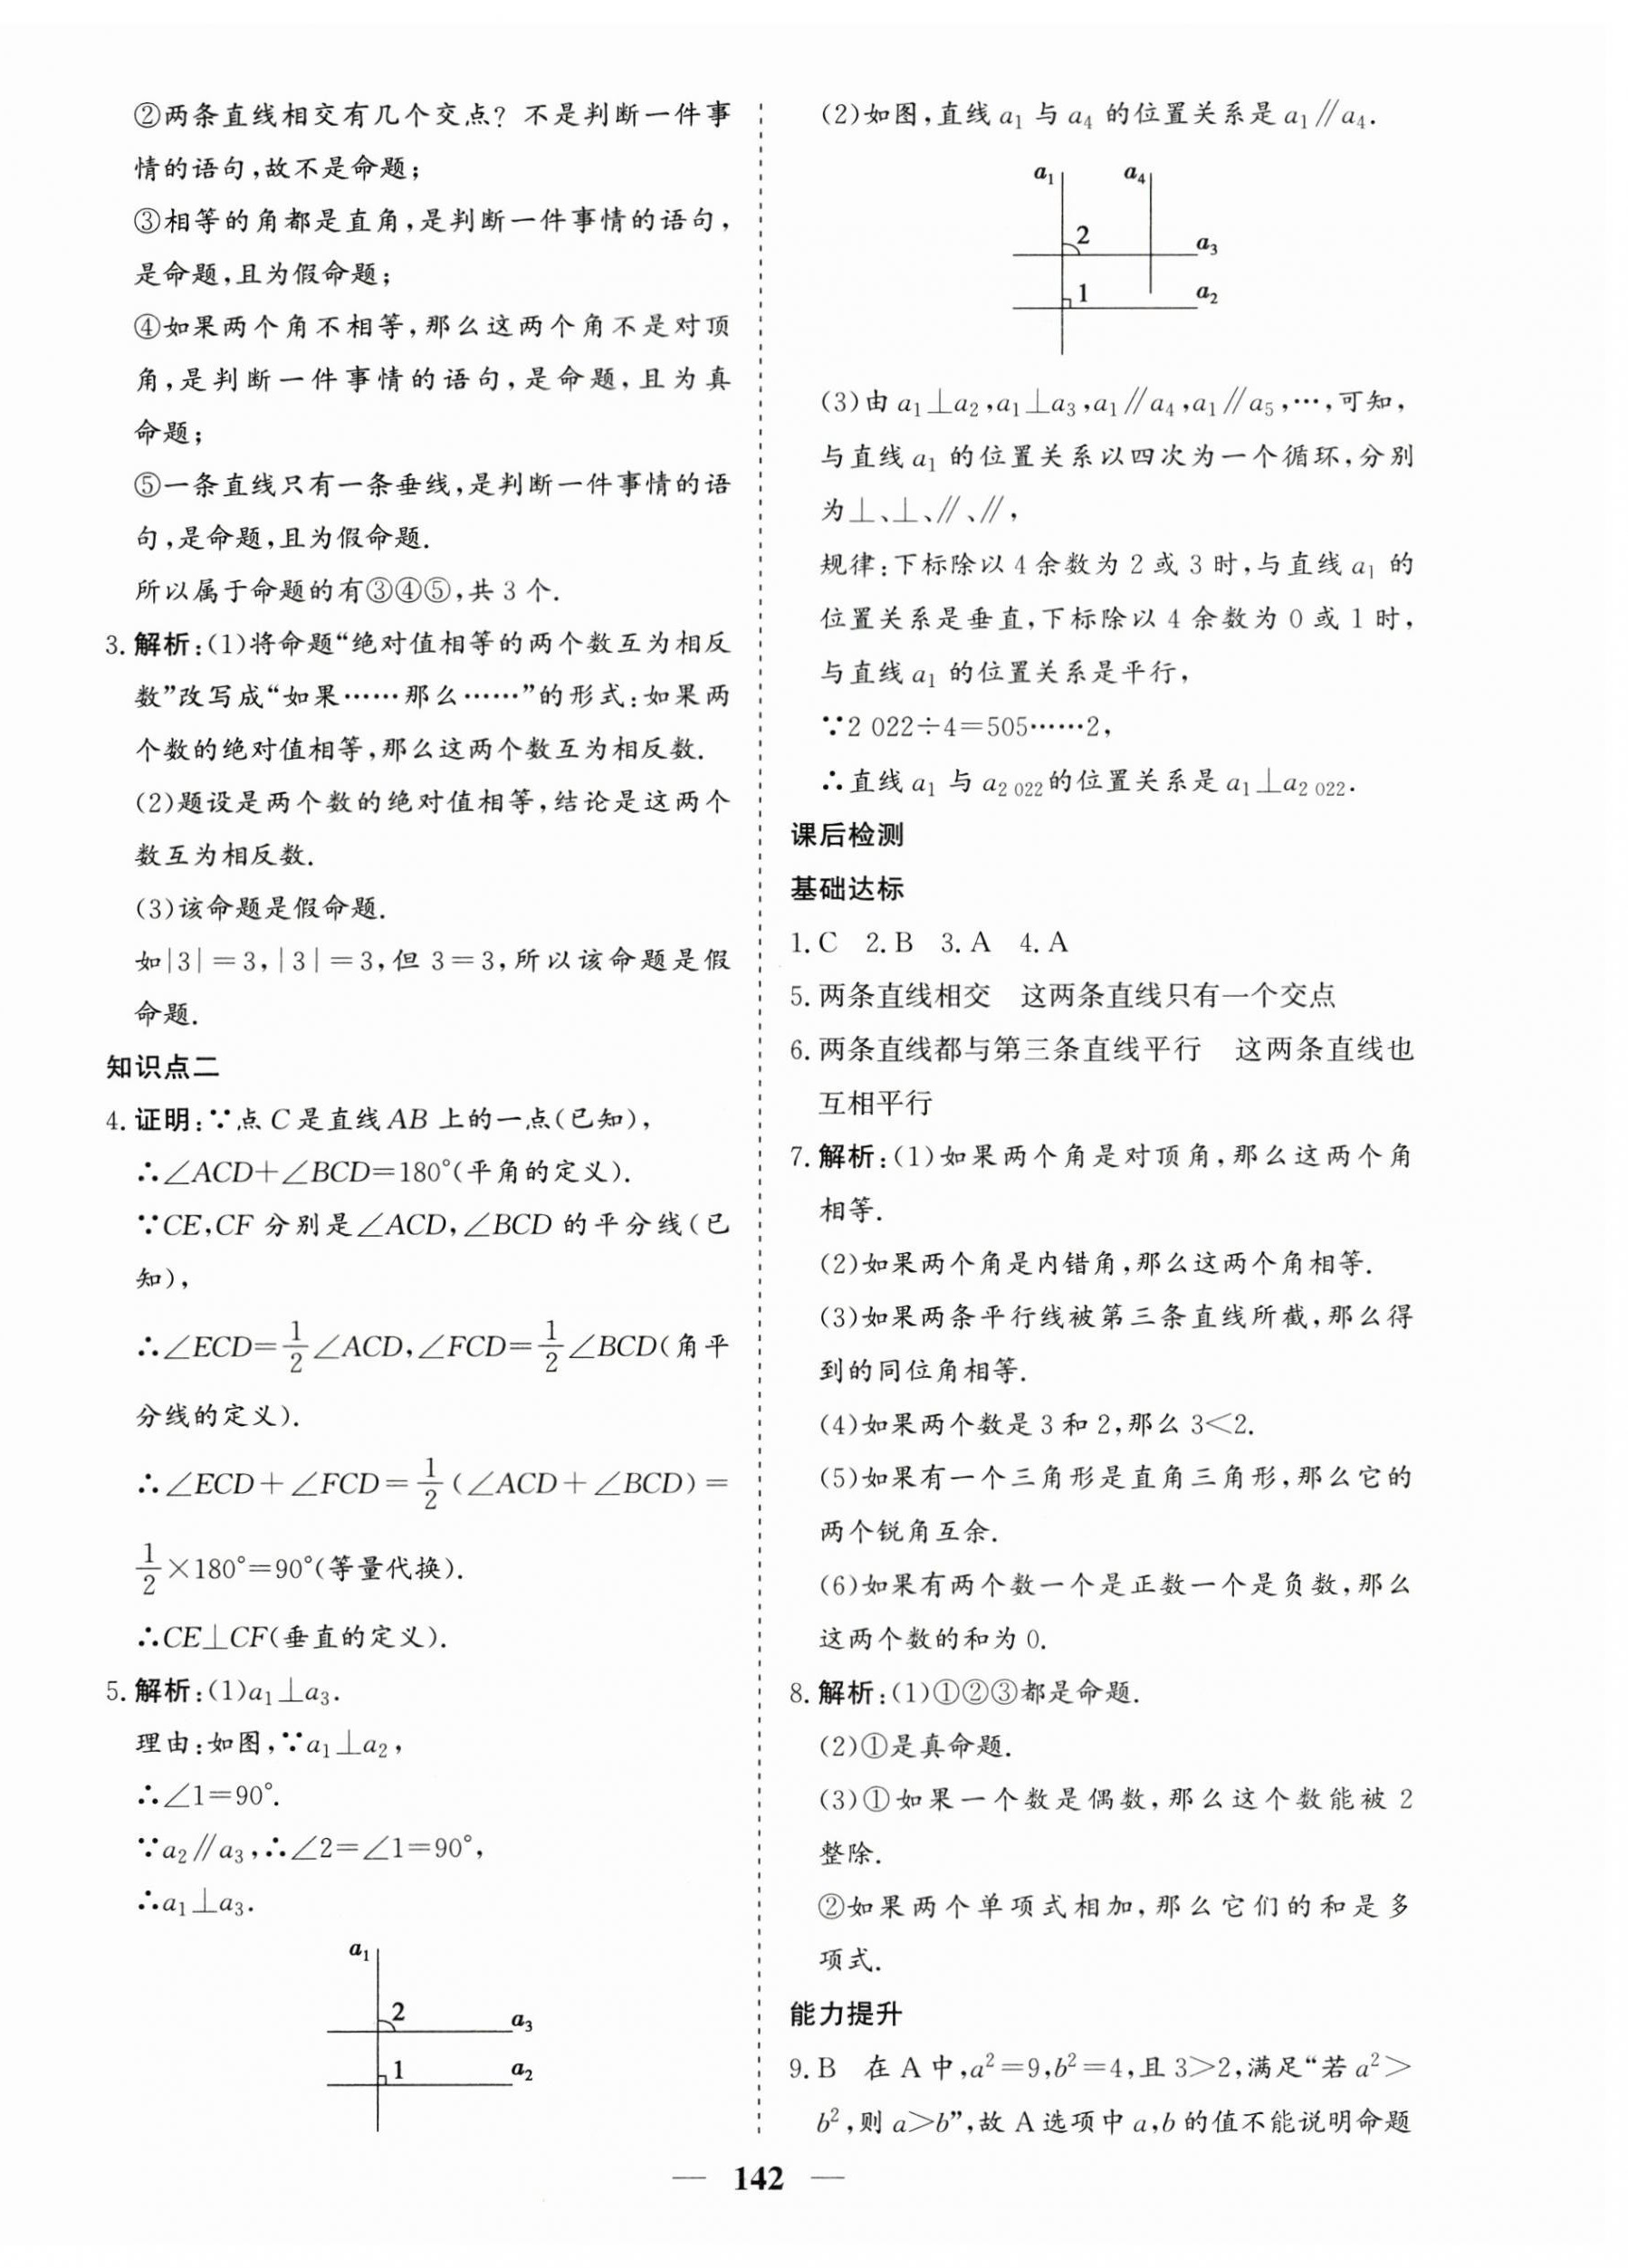 ②两条直线相交有几个交点？不是判断一件事
情的语句,故不是命题;
③相等的角都是直角,是判断一件事情的语句,
是命题,且为假命题;
④如果两个角不相等,那么这两个角不是对顶
角,是判断一件事情的语句,是命题,且为真
命题;
⑤一条直线只有一条垂线,是判断一件事情的语
句,是命题,且为假命题.
所以属于命题的有③④⑤,共 3 个.
3. 解析:(1)将命题“绝对值相等的两个数互为相反
数”改写成“如果……那么……”的形式:如果两
个数的绝对值相等,那么这两个数互为相反数.
(2)题设是两个数的绝对值相等,结论是这两个
数互为相反数.
(3)该命题是假命题.
如|3|=3,|3|=3,但 3=3,所以该命题是假
命题.
知识点二
4. 证明:∵点 C 是直线 AB 上的一点(已知),
∴∠ACD+∠BCD=180°(平角的定义).
∵CE,CF 分别是∠ACD,∠BCD 的平分线(已
知),
∴∠ECD=1/2∠ACD,∠FCD=1/2∠BCD(角平
分线的定义).
∴∠ECD+∠FCD=1/2(∠ACD+∠BCD)=
1/2×180°=90°(等量代换).
∴CE⊥CF(垂直的定义).
5. 解析:(1)a₁⊥a₃.
理由:如图,∵a₁⊥a₂,
∴∠1=90°.
∵a₂∥a₃,∴∠2=∠1=90°,
∴a₁⊥a₃.
a₁
2
a₃
1
a₂
(2)如图,直线 a₁ 与 a₄ 的位置关系是 a₁∥a₄.
a₁ a₄
2
a₃
1
a₂
(3)由 a₁⊥a₂,a₁⊥a₃,a₁∥a₄,a₁∥a₅,…,可知,
与直线 a₁ 的位置关系以四次为一个循环,分别
为⊥、⊥、∥、∥,
规律:下标除以 4 余数为 2 或 3 时,与直线 a₁ 的
位置关系是垂直,下标除以 4 余数为 0 或 1 时,
与直线 a₁ 的位置关系是平行,
∵2 022÷4=505……2,
∴直线 a₁ 与 a₂ ₀₂₂的位置关系是 a₁⊥a₂ ₀₂₂.
课后检测
基础达标
1. C 2. B 3. A 4. A
5. 两条直线相交 这两条直线只有一个交点
6. 两条直线都与第三条直线平行 这两条直线也
互相平行
7. 解析:(1)如果两个角是对顶角,那么这两个角
相等.
(2)如果两个角是内错角,那么这两个角相等.
(3)如果两条平行线被第三条直线所截,那么得
到的同位角相等.
(4)如果两个数是 3 和 2,那么 3<2.
(5)如果有一个三角形是直角三角形,那么它的
两个锐角互余.
(6)如果有两个数一个是正数一个是负数,那么
这两个数的和为 0.
8. 解析:(1)①②③都是命题.
(2)①是真命题.
(3)①如果一个数是偶数,那么这个数能被 2
整除.
②如果两个单项式相加,那么它们的和是多
项式.
能力提升
9. B 在 A 中,a²=9,b²=4,且 3>2,满足“若 a²>
b²,则 a>b”,故 A 选项中 a,b 的值不能说明命题
— 142 —